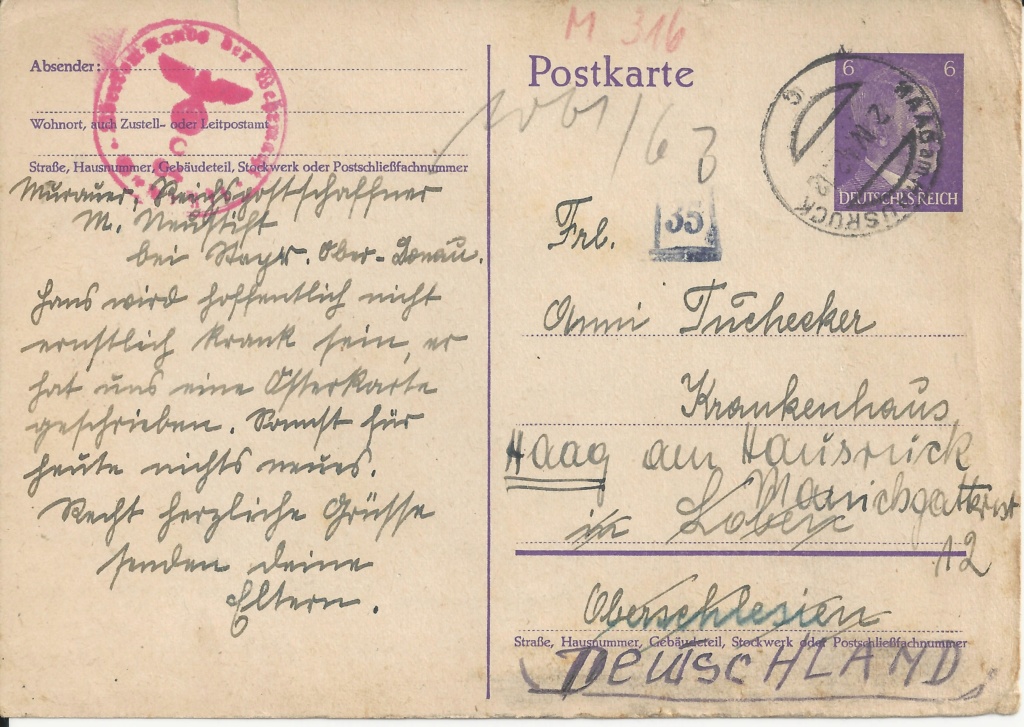 M 316
Absender:
Wohnort, auch Zustell- oder Leitpostamt
Straße, Hausnummer, Gebäudeteil, Stockwerk oder Postschließfachnummer
Murauer, Reichspostschaffner
M. Neustift
bei Steyr. Ober-Donau.
Hans wird hoffentlich nicht
ernstlich krank sein, er
hat uns eine Osterkarte
geschrieben. Sonnst für
heute nichts neues.
Recht herzliche Grüsse
senden deine
Eltern.
Postkarte
6 6
DEUTSCHES REICH
HAAG am HAUSRUCK
35
Frl.
Anni Tuchecker
Krankenhaus
Haag am Hausruck
in
12
Oberschlesien
Straße, Hausnummer, Gebäudeteil, Stockwerk oder Postschließfachnummer
DEUTSCHLAND